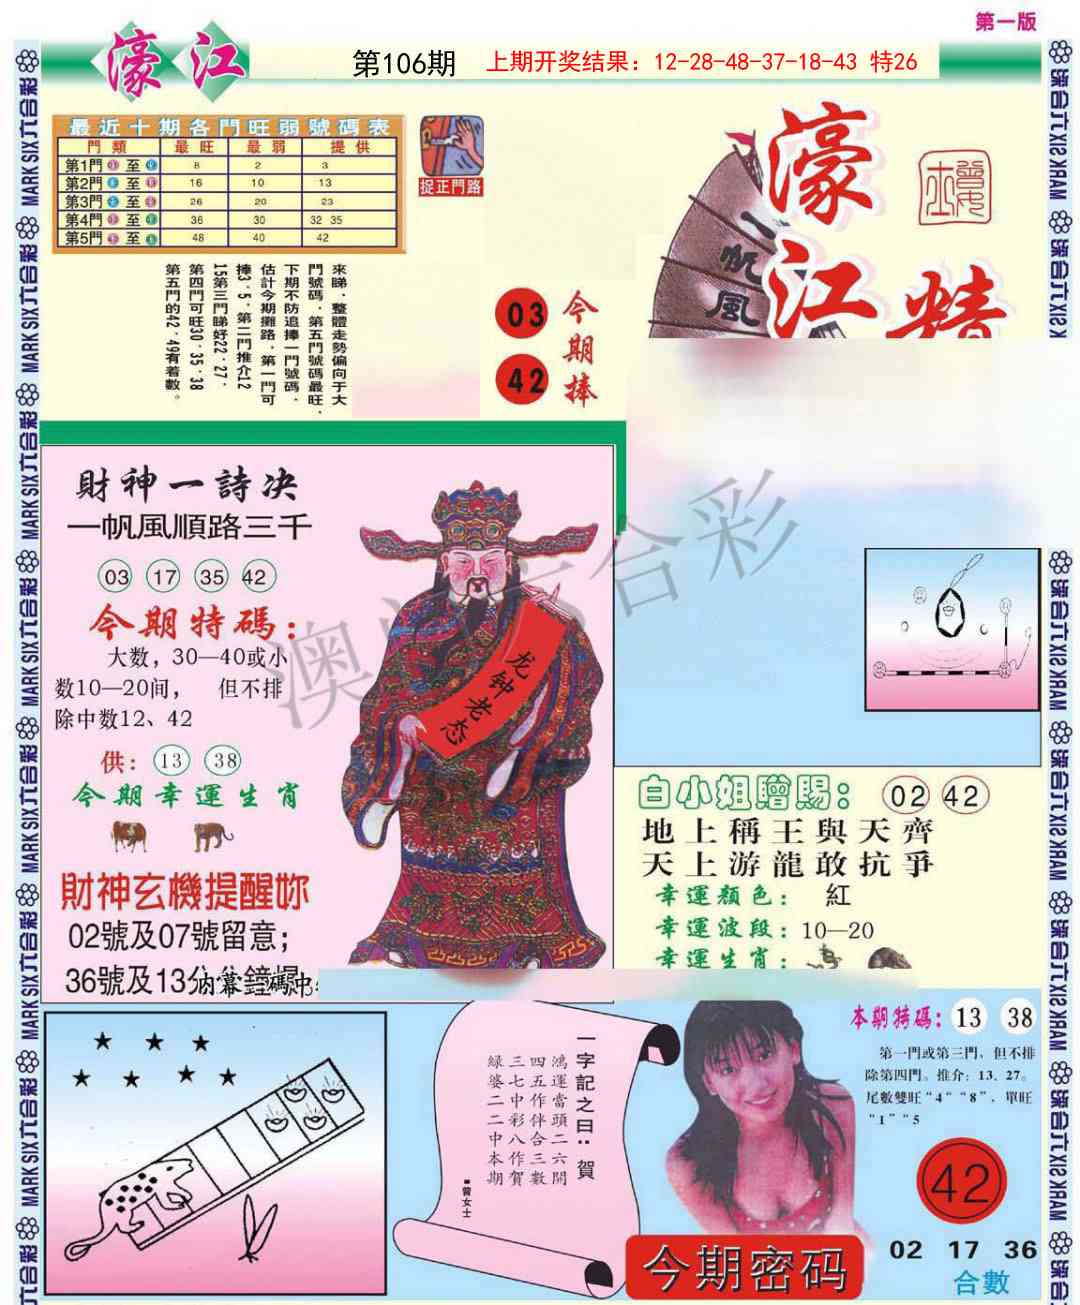 第一版
濠江
第106期
上期开奖结果：12-28-48-37-18-43 特26
最近十期各門旺弱號碼表
門類 最旺 最弱 提供
第1門 至 8 2 3
第2門 至 16 10 13
第3門 至 26 20 23
第4門 至 36 30 32 35
第5門 至 48 40 42
捉正門路
來睇，整體走勢偏向于大
門號碼，第五門號碼最旺，
下期不防追捧一門號碼，
估計今期攤路，第一門可
捧3．5，第二門推介12
15第三門睇好22．27．
第四門可旺30．35．38
第五門的42．49有着數。
03
42
今期捧
濠江精
一帆風
財神一詩决
一帆風順路三千
03 17 35 42
今期特碼：
大数，30—40或小
数10—20间， 但不排
除中数12、42
供：13 38
今期幸運生肖
財神玄機提醒妳
02號及07號留意；
36號及13
龙钟老态
澳 六合彩
白小姐贈賜：02 42
地上稱王與天齊
天上游龍敢抗爭
幸運顏色：紅
幸運波段：10—20
幸運生肖：
一字記之曰：賀
鴻運當頭二六開
四五作伴合三數
三七中彩八作賀
緑婆二二中本期
■曾女士
本期特碼：13 38
第一門或第三門，但不排
除第四門。推介：13、27。
尾數雙旺“4”“8”，單旺
“1”“5
42
今期密码
02 17 36
合數
MARK SIX六合彩